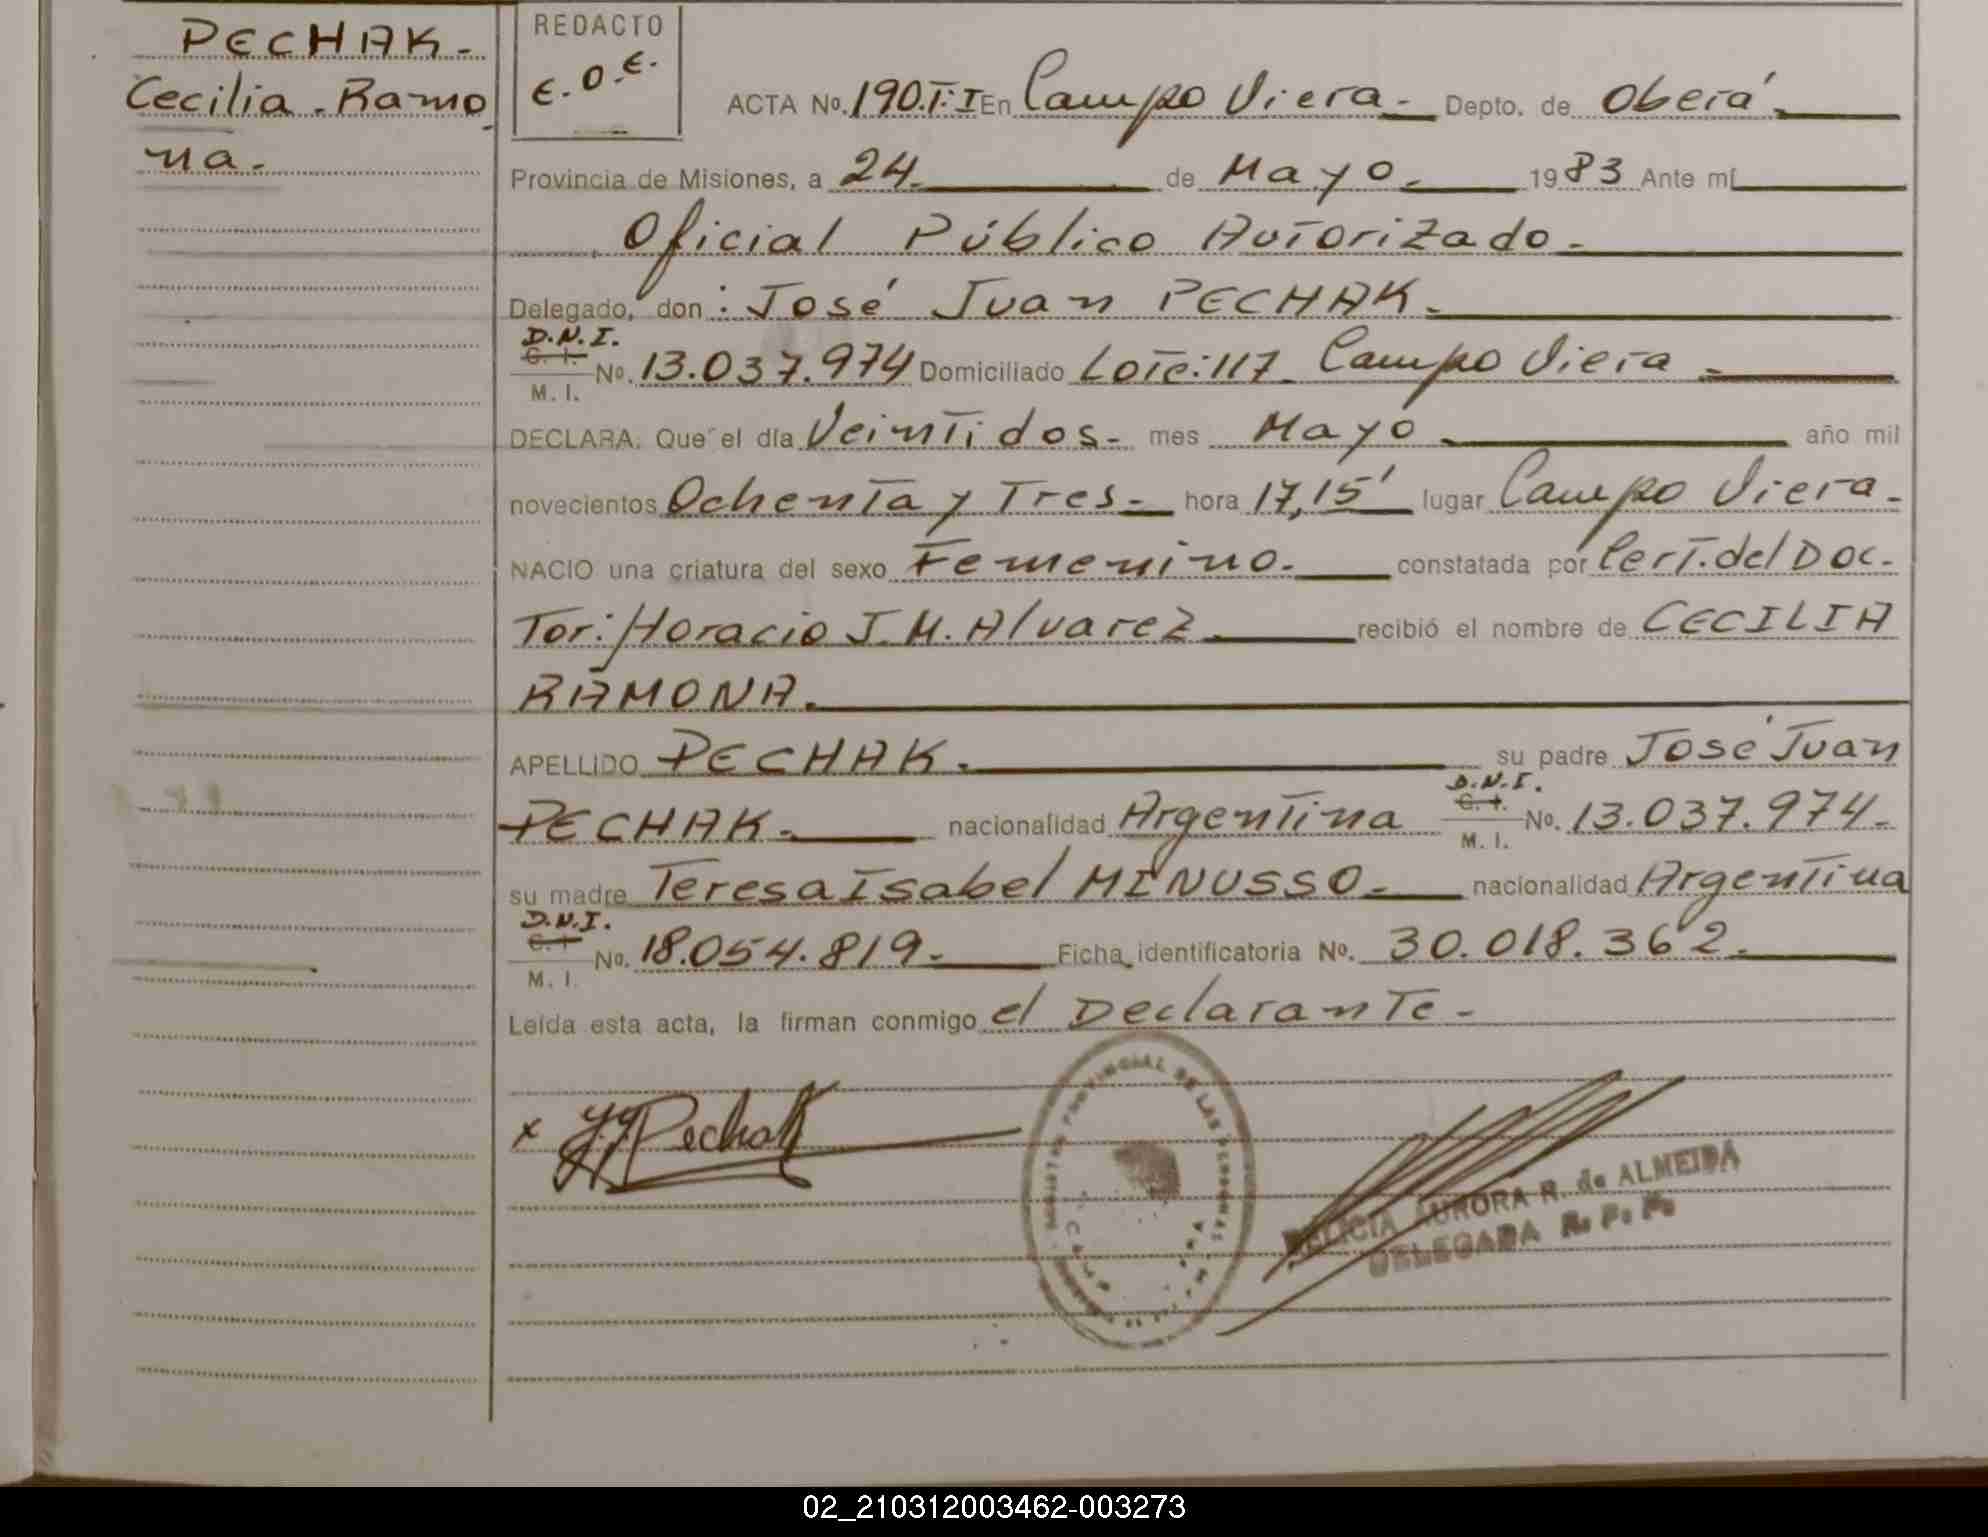 PECHAK.
Cecilia. Ramo
na.
REDACTO
E.O.E.
ACTA No. 190.T:I En Campo Viera. Depto. de Oberá.
Provincia de Misiones, a 24. de Mayo. 1983 Ante mí
Oficial Público Autorizado.
Delegado, don: José Juan PECHAK.
D.N.I.
C. I.
M. I.
No. 13.037.974 Domiciliado Lote:117 Campo Viera
DECLARA: Que el día Veintidos. mes Mayo. año mil
novecientos Ochenta y Tres. hora 17,15' lugar Campo Viera.
NACIO una criatura del sexo Femenino. constatada por Cert. del Doc-
Tor: Horacio J. M. Alvarez recibió el nombre de CECILIA
RAMONA.
APELLIDO PECHAK. su padre José Juan
PECHAK. nacionalidad Argentina D.N.I. C. I. M. I. No. 13.037.974.
su madre Teresa Isabel MINUSSO. nacionalidad Argentina
D.N.I.
C. I.
M. I.
No. 18.054.819. Ficha identificatoria No. 30.018.362.
Leída esta acta, la firman conmigo el Declarante.
x J.J.Pechak
PROVINCIAL DE LAS PERSONAS
FELICIA AURORA R. de ALMEIDA
DELEGADA R. P. P.
02_210312003462-003273